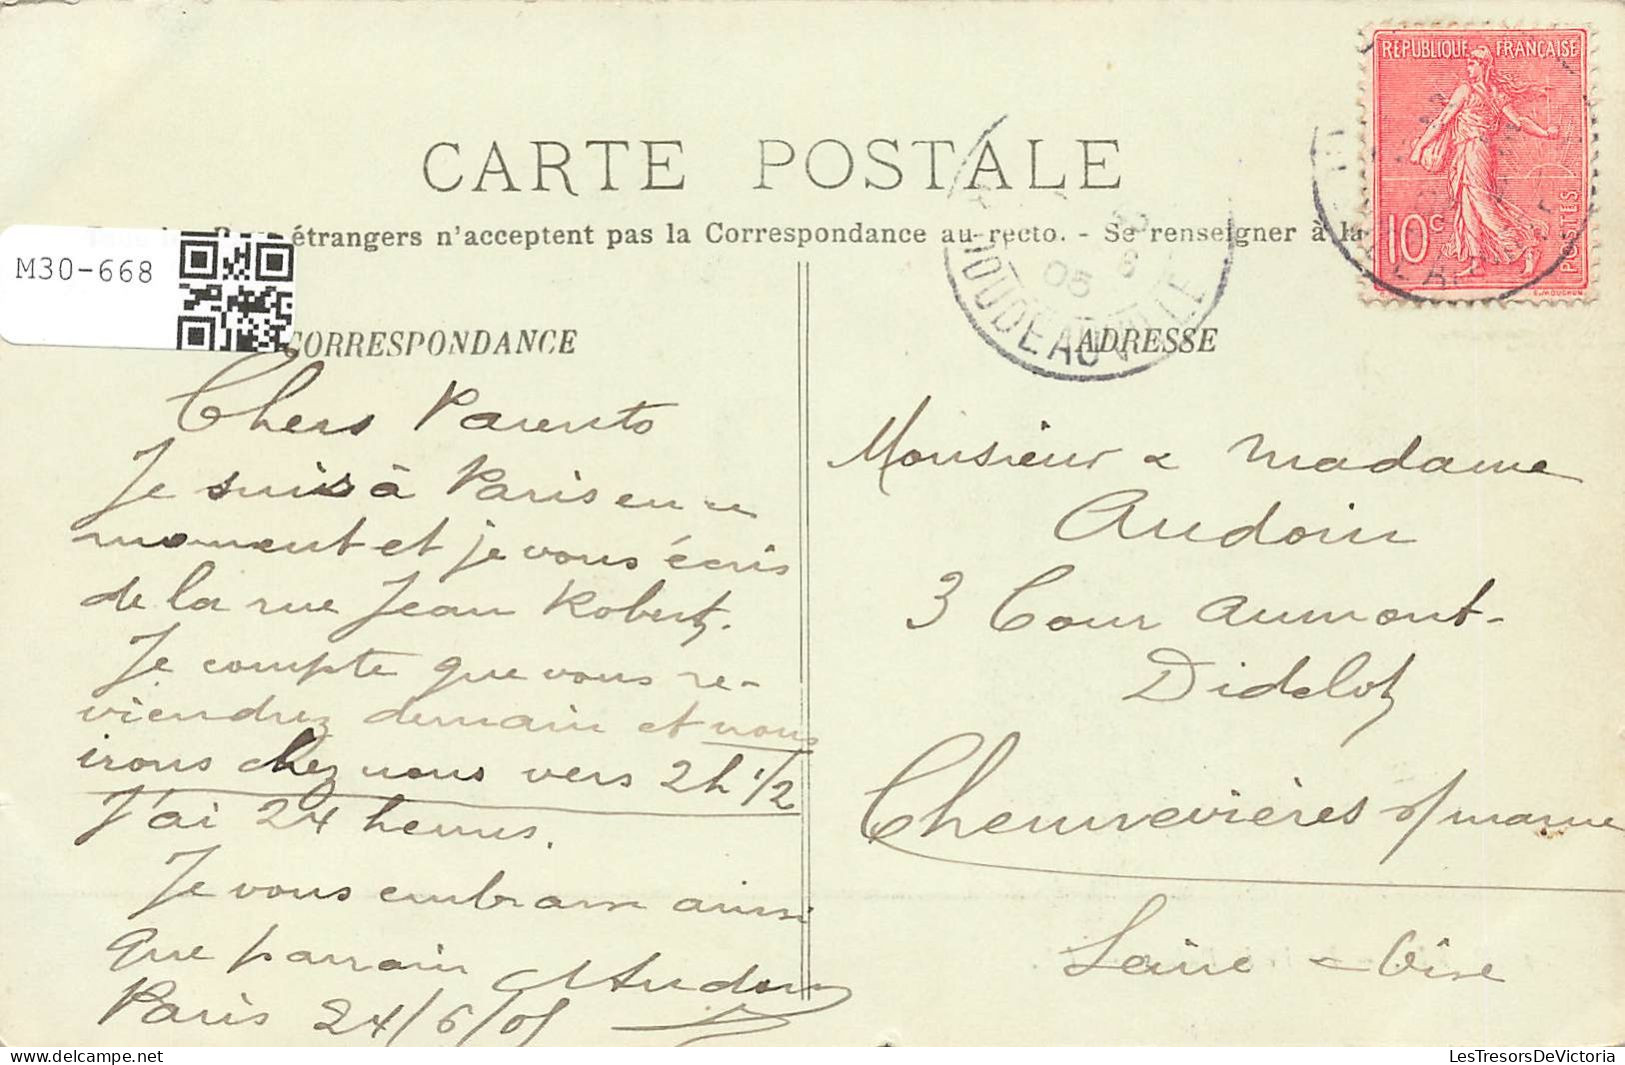 RÉPUBLIQUE FRANÇAISE
10c
POSTES
CARTE POSTALE
étrangers n'acceptent pas la Correspondance au recto. - Se renseigner à la
M30-668
CORRESPONDANCE
Chers Parents
Je suis à Paris en ce
moment et je vous écris
de la rue Jean Robert.
Je compte que vous re-
viendrez demain et nous
irons chez nous vers 2h 1/2
J'ai 24 heures.
Je vous embrasse ainsi
que parrain
Paris 24/6/05
05
6
ADRESSE
Monsieur & Madame
Audoin
3 Cour Aumont-
Didelot
Chennevières s/ marne
Seine & Oise
LesTresorsDeVictoria